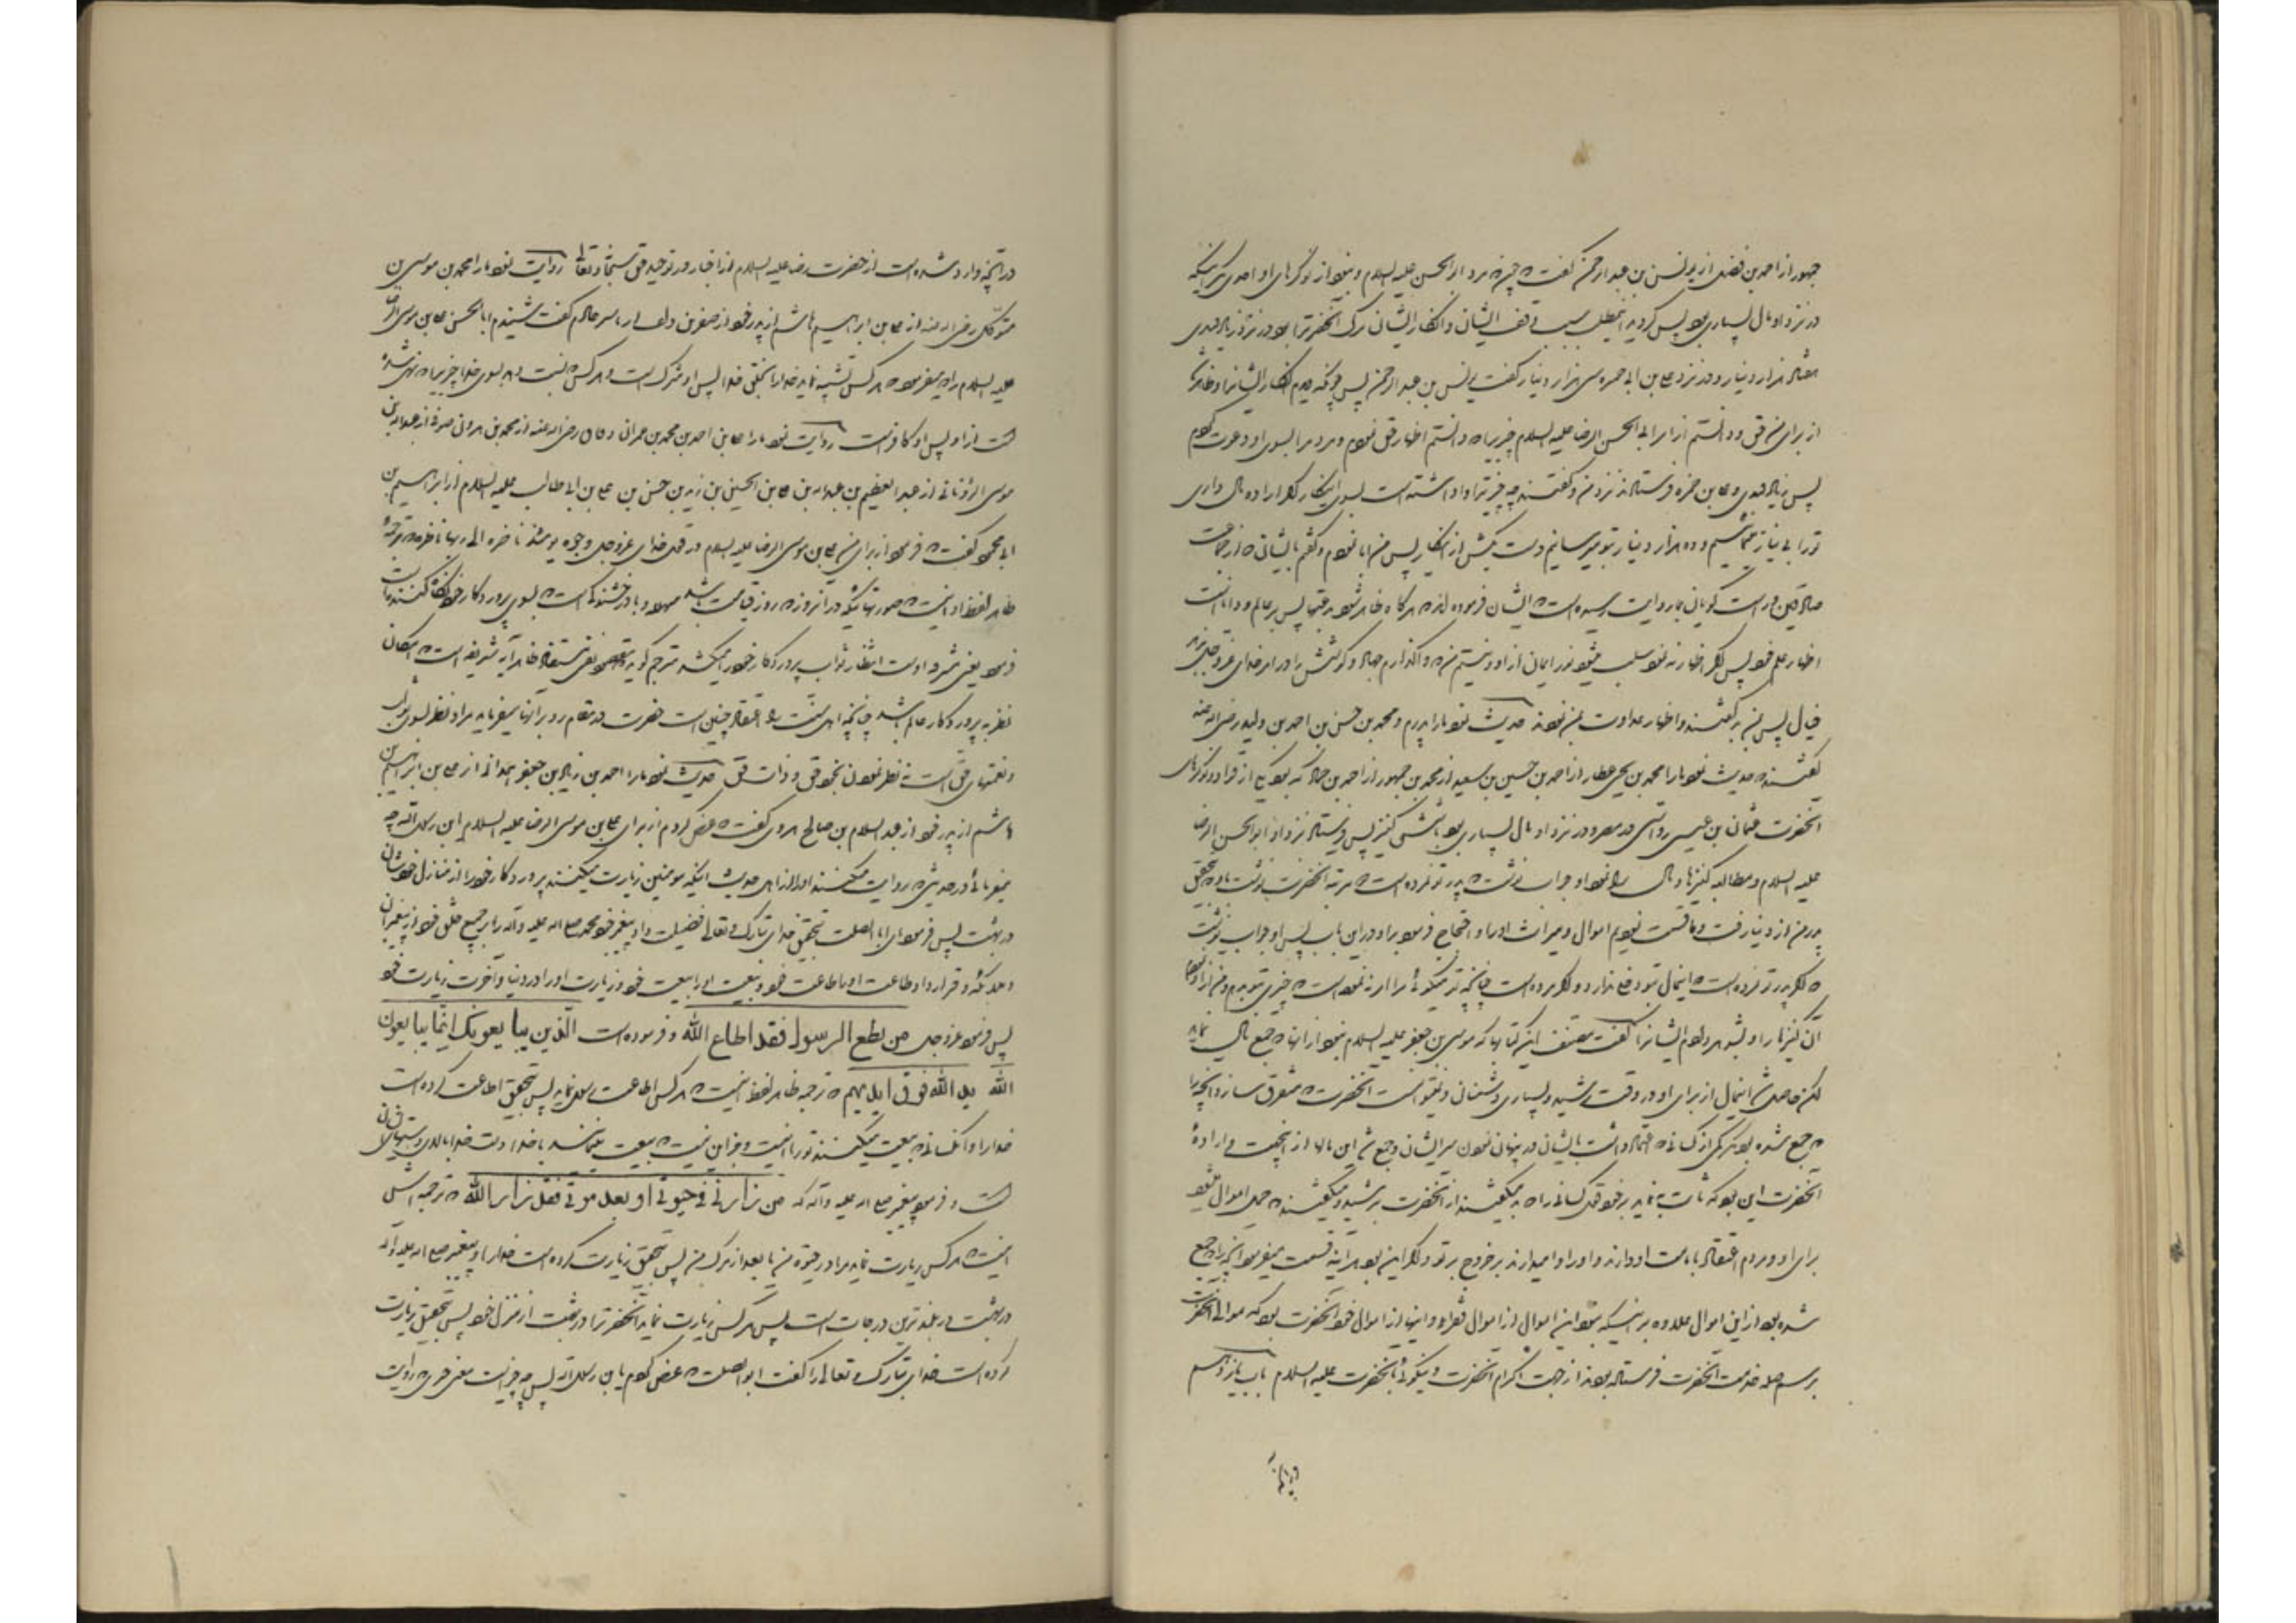 جمهور از احمد بن فضل از یونس بن عبد الرحمن گفت که چون مرد ابو الحسن علیه السلام و نبود از نوکرهای او احدی مگر اینکه
در نزد او مال بسیاری بود پس گردید اینمطلب سبب وقف ایشان و انکار ایشان مرگ آنحضرترا و بود در نزد زیاد قندی
هفتاد هزار دینار و در نزد علی بن ابی حمزه سی هزار دینار گفت یونس بن عبد الرحمن پس چونکه دیدم انکار ایشانرا و ظاهر شد
از برای من حق و دانستم از امر ابی الحسن الرضا علیه السلام چیزیرا که دانستم اظهار حق نمودم و مردم را بسوی او دعوت کردم
پس زیاد قندی و علی بن حمزه فرستادند نزد من و گفتند چه چیز ترا واداشته است بسوی اینکار اگر اراده مال داری
تو را بی نیاز مینمائیم و ده هزار دینار بتو میرسانیم دست بکش از انکار پس من ابا نمودم و گفتم بایشان که از جماعت
صادقین که راست گویان بما روایت رسیده است که ایشان فرموده اند که هر گاه ظاهر شود بدعتها پس بر عالم و دانا است
اظهار علم خود پس اگر اظهار نه نمود سلب میشود نور ایمان از او و نیستم من که واگذارم جهاد و کوشش را در امر خدای عزوجل بر هر
حال پس بمن برگشتند و اظهار عداوت بمن نمودند حدیث نمود ما را پدرم و محمد بن حسن بن احمد بن ولید رضی الله عنه
گفتند که حدیث نمود ما را محمد بن یحیی عطار از احمد بن حسین بن سعید از محمد بن جمهور از احمد بن حماد که بود یکی از قوام و نوکرهای
آنحضرت عثمان بن عیسی رواسی در مصر و در نزد او مال بسیاری بود با شش کنیز پس فرستاد نزد او ابو الحسن الرضا
علیه السلام و مطالبه کنیزها و مال را نمود او جواب نوشت که پدر تو نمرده است مرتبه آنحضرت نوشت باو که بتحقیق
پدر من از دنیا رفت و ما قسمت نمودیم اموال و میراث او را و احتجاج فرمود بر او در این باب پس او جواب نوشت
که اگر پدر تو نمرده است اینمال بتو دخلی ندارد و اگر مرده است چنانچه تو میگوئی مرا امر نه نموده است که چیزی بتو بدهم و من آزاد نمودم
آن کنیزها را و بشوهر دادم ایشانرا گفت مصنف این کتاب که موسی بن جعفر علیه السلام نبود از آنها که جمع مال نماید
لکن حاصل شد اینمال از برای او در وقت رشید و بسیاری دشمنان و نمیتوانست آنحضرت که متفرق سازد آنچه را
که جمع شده بود مگر کمی از کسانی که اعتماد داشت بایشان در پنهان نمودن سر ایشان و جمع شد این مالها از اینجهت و اراده
آنحضرت این بود که ثابت نه نماید بر خود قول کسانی را که میگفتند از آنحضرت برشید و میگفتند که حمل اموال میشود
برای او و مردم اعتقاد بامامت او دارند و او را وامیدارند بر خروج بر تو و اگر این نبود هر آینه قسمت میفرمود آنچه را که جمع
شده بود از این اموال علاوه بر اینکه نبود این اموال از اموال فقراء و اینها از اموال خود آنحضرت بود که موالی آنحضرت
برسم صله خدمت آنحضرت فرستاده بودند از جهت اکرام آنحضرت و نیکوئی بآنحضرت علیه السلام باب یازدهم
در آنچه
در آنچه وارد شده است از حضرت رضا علیه السلام از اخبار در توحید حق سبحانه و تعالی روایت نمود ما را محمد بن موسی بن
متوکل رضی الله عنه از علی بن ابراهیم هاشم از پدر خود از صقر بن دلف از یاسر خادم گفت شنیدم ابا الحسن علی بن موسی الرضا
علیه السلام را که میفرمود که هر کس تشبیه نماید خدا را بخلق خدا پس او مشرک است و هر کس که نسبت دهد بسوی خدا چیزیرا که نهی شده
است از او پس او کافر است روایت نمود ما را علی بن احمد بن محمد بن عمران دقاق رضی الله عنه از محمد بن هرونی صوفی از عبد الله بن
موسی الرویانی از عبد العظیم بن عبد الله بن علی بن الحسین بن زید بن حسن بن علی بن ابی طالب علیه السلام از ابراهیم بن
ابی محمود گفت که فرمود از برای من علی بن موسی الرضا علیه السلام در قول خدای عزوجل وجوه یومئذ ناضرة الی ربها ناظرة که ترجمه
ظاهر لفظ او اینست که صورتهائیکه در انروز که روز قیامت باشد و با درخشندگی است که بسوی پرورد کار خود نگاه کننده است
فرمود یعنی مشرق است انتظار ثواب پرورد کار خود را میکشد مترجم گوید مقصود نفی مستفاد ظاهر آیه شریفه است که امکان
نظر به پرورد کار عالم باشد چنانچه اهل سنت را اعتقاد چنین است حضرت در مقام رد بر آنها میفرماید مراد نظر بسوی ثواب
و نعمتهای حق است نه نظر نمودن بخود حق و ذات حق حدیث نمود ما را احمد بن زیاد بن جعفر همدانی از علی بن ابراهیم بن
هاشم از پدر خود از عبد السلام بن صالح هروی گفت که عرض کردم از برای علی بن موسی الرضا علیه السلام ابن رسول الله چه
میفرمائی در حدیثی که روایت میکنند او را از اهل حدیث اینکه مومنین زیارت میکنند پرورد کار خود را از منازل خودشان
در بهشت پس فرمود ای ابا الصلت بتحقیق خدای تبارک و تعالی فضیلت داد پیغمبر خود محمد صلی الله علیه و آله را بر جمیع خلق خود از پیغمبران
و ملائکه و قرار داد طاعت او را طاعت خود و بیعت او را بیعت خود و زیارت او را در دنیا و آخرت زیارت خود
پس فرمود عزوجل من یطع الرسول فقد اطاع الله و فرموده است الذین یبایعونک انما یبایعون
الله ید الله فوق ایدیهم که ترجمه ظاهر لفظ اینست که هر کس اطاعت رسول نماید پس بتحقیق اطاعت کرده است
خدا را و آنکسانی که بیعت میکنند تو را اینست و جز این نیست که بیعت مینمایند با خدا و دست خدا بالای دستهای ایشان
است و فرمود پیغمبر صلی الله علیه و آله که من زارنی فی حیوتی او بعد موتی فقد زار الله که ترجمه اش
اینست که هر کس زیارت نماید مرا در حیوة من یا بعد از مرگ من پس بتحقیق زیارت کرده است خدا را و پیغمبر صلی الله علیه و آله
در بهشت در بلندترین درجات است پس هر کس زیارت نماید آنحضرترا در بهشت از منزل خود پس بتحقیق زیارت
کرده است خدای تبارک و تعالی را گفت ابو الصلت که عرض کردم یا بن رسول الله پس چه چیز است معنی خبری که روایت